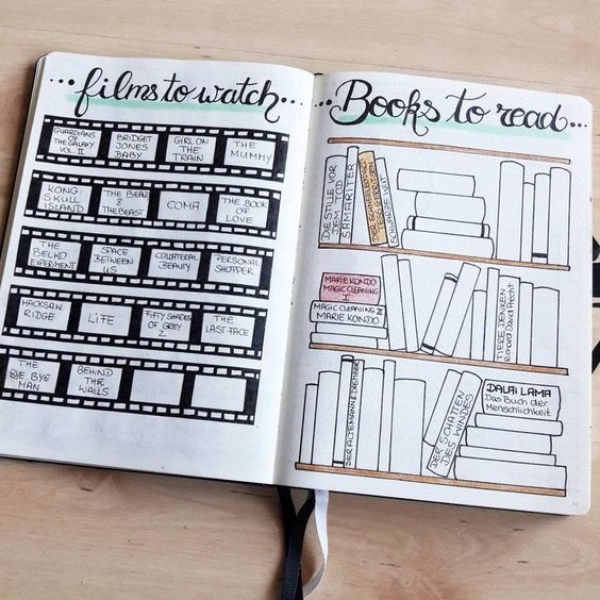 films to watch
GUARDIANS
OF
THE GALAXY
VOL II
BRIDGET
JONES
BABY
GIRL ON
THE
TRAIN
THE
MUMMY
KONG:
SKULL
ISLAND
THE BEAUTY
&
THE BEAST
COMA
THE BOOK
OF
LOVE
THE
BELKO
EXPERIMENT
SPACE
BETWEEN
US
COLLATERAL
BEAUTY
PERSONAL
SHOPPER
HACKSAW
RIDGE
LIFE
FIFTY SHADES
OF GREY
2
THE
LAST FACE
THE
BYE BYE
MAN
BEHIND
THE
WALLS
Books to read
DIE STILLE VOR
DEM TOD
SAMARITER
SCHWARZE WUT
MARIE KONDO
MAGIC CLEANING
I
MAGIC CLEANING II
MARIE KONDO
TIERE DENKEN
Richard David Precht
DER SCHATTEN
DES WINDES
DALAI LAMA
Das Buch der
Menschlichkeit